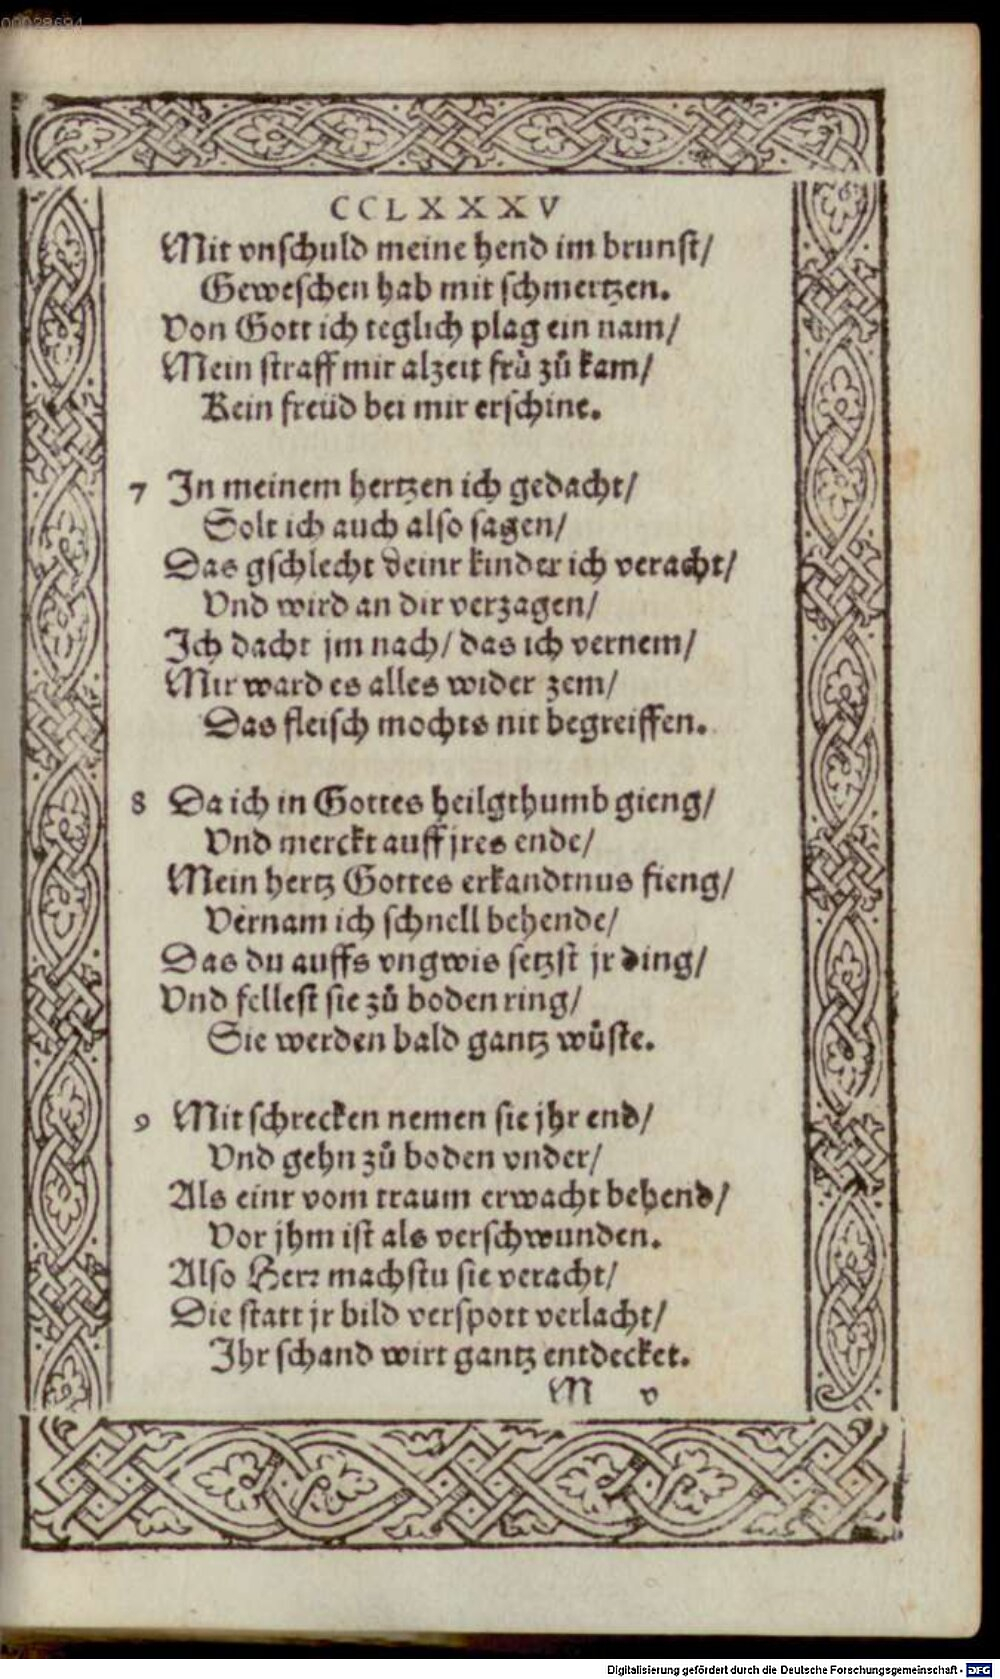 00028694
CCLXXXV
Mit vnschuld meine hend im brunst/
Geweschen hab mit schmertzen.
Von Gott ich teglich plag ein nam/
Mein straff mir alzeit frü zů kam/
Kein freüd bei mir erschine.
7 In meinem hertzen ich gedacht/
Solt ich auch also sagen/
Das gschlecht deinr kinder ich veracht/
Vnd wird an dir verzagen/
Ich dacht jm nach/ das ich vernem/
Mir ward es alles wider zem/
Das fleisch mochts nit begreiffen.
8 Da ich in Gottes heilgthumb gieng/
Vnd merckt auff jres ende/
Mein hertz Gottes erkandtnus fieng/
Vernam ich schnell behende/
Das du auffs vngwis setzst jr ding/
Vnd fellest sie zů boden ring/
Sie werden bald gantz wůste.
9 Mit schrecken nemen sie jhr end/
Vnd gehn zů boden vnder/
Als einr vom traum erwacht behend/
Vor jhm ist als verschwunden.
Also Herr machstu sie veracht/
Die statt jr bild verspott verlacht/
Ihr schand wirt gantz entdecket.
M v
Digitalisierung gefördert durch die Deutsche Forschungsgemeinschaft - DFG